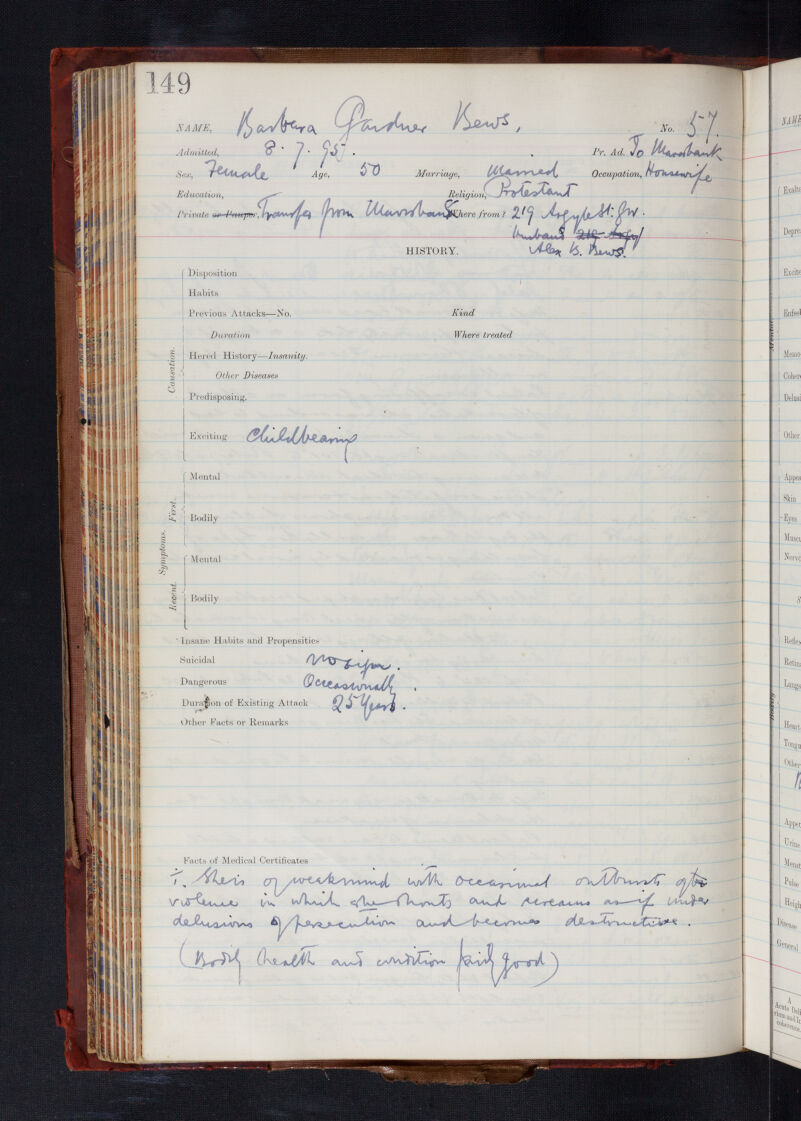 149
NAME, Barbara Gardner Bews, No. 57.
Admitted, 8. 7. 95. Pr. Ad. To Mavisbank
Sex, Female Age, 50 Marriage, Married Occupation, Housewife
Education, Religion, Protestant
Private or Pauper. Transfer from Mavisbank Where from? 219 Argyle St: Gw.
husband 219 Argyl
HISTORY. Alex B. Bews.
Disposition
Habits
Previous Attacks—No. Kind
Duration Where treated
Hered History—Insanity.
Other Diseases
Predisposing.
Causation.
Exciting Childbearing
Mental
First.
Bodily
Symptoms.
Mental
Recent.
Bodily
Insane Habits and Propensities
Suicidal
Dangerous Occasionally.
Duration of Existing Attack 25 Years.
Other Facts or Remarks
Facts of Medical Certificates
1. She is of weak mind with occasional outbursts of
violence in which she shouts and screams as if under
delusions of persecution and becomes destructive.
(Bodily health and condition fairly good)
NAME
Exalt
Depre
Excite
Enfee
Memo
Coher
Delus
Other
Appea
Skin
Eyes
Muscu
Nervo
Reflex
Retin
Lungs
Heart
Tongu
Other
Appet
Urine
Menst
Pulse
Heigh
Disease
General
A
Acute Deli